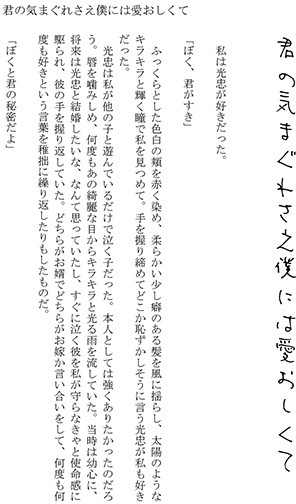 君の気まぐれさえ僕には愛おしくて
君の気まぐれさえ僕には愛おしくて
私は光忠が好きだった。
「ぼく、君がすき」
ふっくらとした色白の頬を赤く染め、柔らかい少し癖のある髪を風に揺らし、太陽のような
キラキラと輝く瞳で私を見つめて。手を握り締めてどこか恥ずかしそうに言う光忠が私も好き
だった。
光忠は私が他の子と遊んでいるだけで泣く子だった。本人としては強くありたかったのだろ
う。唇を噛みしめ、何度もあの綺麗な目からキラキラと光る雨を流していた。当時は幼心に、
将来は光忠と結婚したいな、なんて思っていたし、すぐに泣く彼を私が守らなきゃと使命感に
駆られ、彼の手を握り返していた。どちらがお婿でどちらがお嫁か言い合いをして、何度も何
度も好きという言葉を稚拙に繰り返したりもしたものだ。
『ぼくと君の秘密だよ』